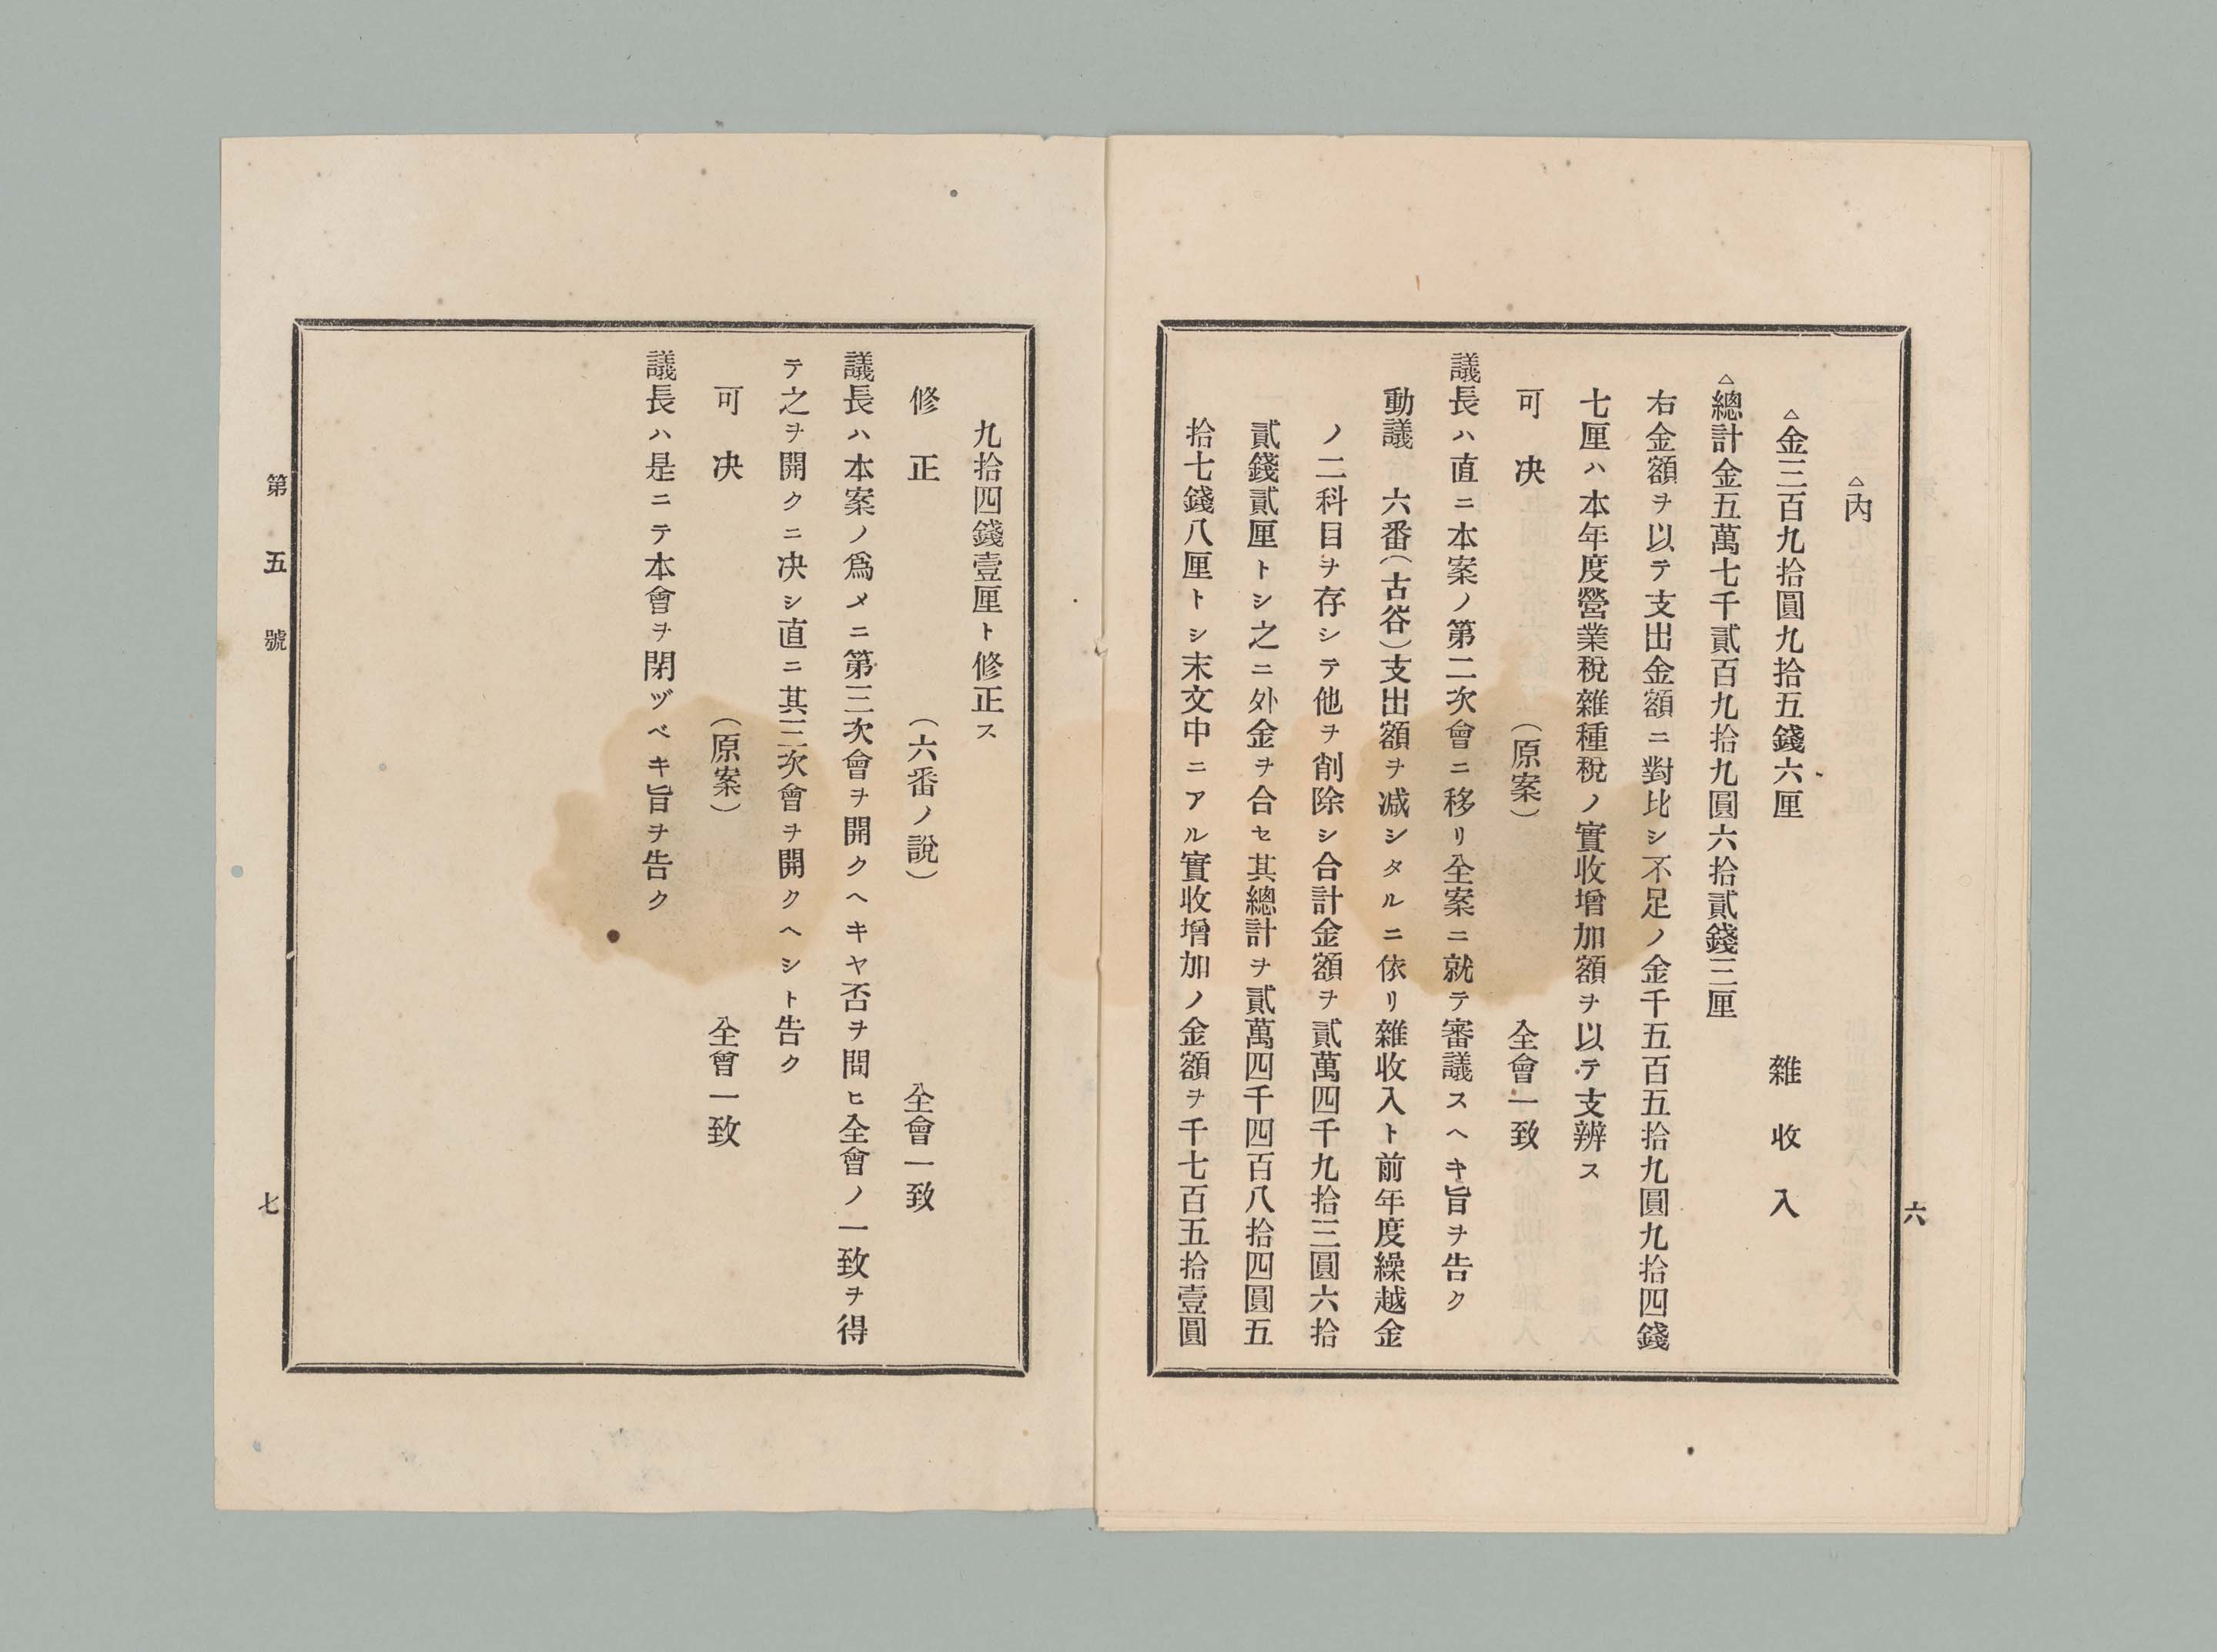 六
△內
△金三百九拾圓九拾五錢六厘 雜收入
△總計金五萬七千貳百九拾九圓六拾貳錢三厘
右金額ヲ以テ支出金額ニ對比シ不足ノ金千五百五拾九圓九拾四錢
七厘ハ本年度營業稅雜種稅ノ實收增加額ヲ以テ支辨ス
可決 (原案) 全會一致
議長ハ直ニ本案ノ第二次會ニ移リ全案ニ就テ審議スヘキ旨ヲ告ク
動議 六番(古谷)支出額ヲ減シタルニ依リ雜收入ト前年度繰越金
ノ二科目ヲ存シテ他ヲ削除シ合計金額ヲ貳萬四千九拾三圓六拾
貳錢貳厘トシ之ニ外金ヲ合セ其總計ヲ貳萬四千四百八拾四圓五
拾七錢八厘トシ末文中ニアル實收增加ノ金額ヲ千七百五拾壹圓
九拾四錢壹厘ト修正ス
修正 (六番ノ說) 全會一致
議長ハ本案ノ爲メニ第三次會ヲ開クヘキヤ否ヲ問ヒ全會ノ一致ヲ得
テ之ヲ開クニ決シ直ニ其三次會ヲ開クヘシト告ク
可決 (原案) 全會一致
議長ハ是ニテ本會ヲ閉ヅベキ旨ヲ告ク
第五號
七